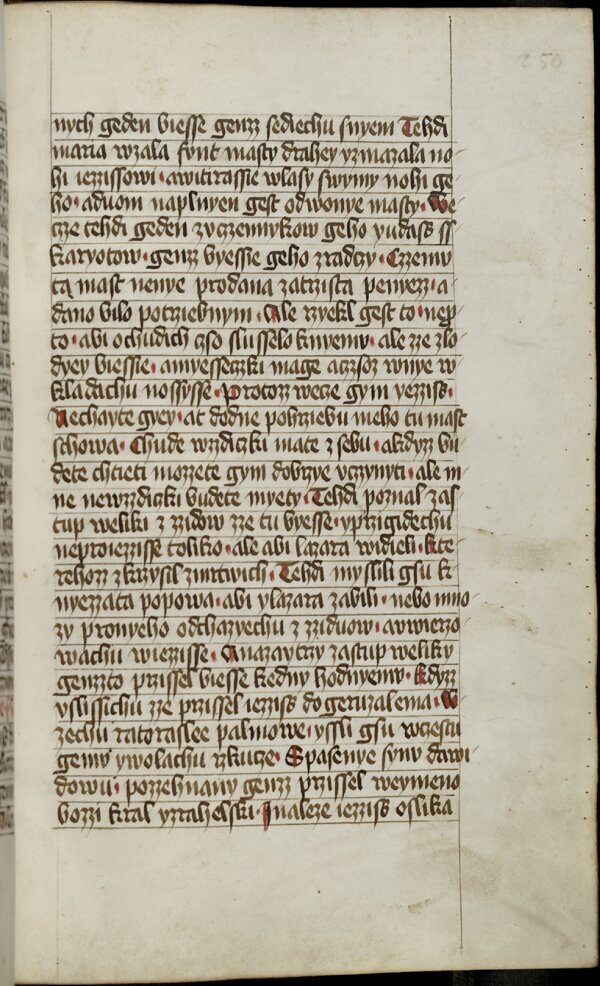 250
nych geden biesse genzz sediechu snyem Tehdi
maria wzala funt masty drahey yzmazala no-
hi iezzissowi · awitirassie wlasy swymy nohi ge-
ho · aduom naplnyen gest odwonye masty · We-
cze tehdi geden zyczennykow geho yudass ss-
karyotow · genzz byesse geho zradczy · Czzemu
ta mast nenye prodana zatrzista penyezz · a-
dano bilo potrziebnym · Ale rzyekl gest to · nepro-
to · abi ochudich czso slusselo knyemu · ale zze zlo-
dyey biessie · amyesseczki mage aczsoz wnye w-
kladachu nossysse · Protozz wecze gym yezziss ·
Nechayte gyey · at dodne pohrziebu meho tu mast
schowa · Chude wzzdiczki mate z sebu · akdyzz bu-
dete chtieti mozzete gym dobrzye vczynyti · ale m-
ne newzzdiczki budete myety · Tehdi poznal zas-
tup weliki z zzidow zze tu byesse · yprzigidechu
neproiezzisse toliko · ale abi lazara widieli · kte-
rehozz zkrzysil zmrtwich · Tehdi myslili gsu k-
nyezzata popowa · abi ylazara zabili · nebo mno-
zy pronyeho odchazyechu z zziduow · awierzo-
wachu wiezzisse · Anazaytrzy zastup weliky
genzzto przissel biesse kedny hodnyemu · kdyzz
vslissichu zze przissel iezziss do geruzalema · W-
zechu ratoraslee palmowe · yssli gsu wczestu
gemu ywolachu rzkucze · Spasenye synu dawi-
dowu · pozzehnany genzz przissel weymeno
bozzi kral yzrahelski · Inaleze iezziss oslika